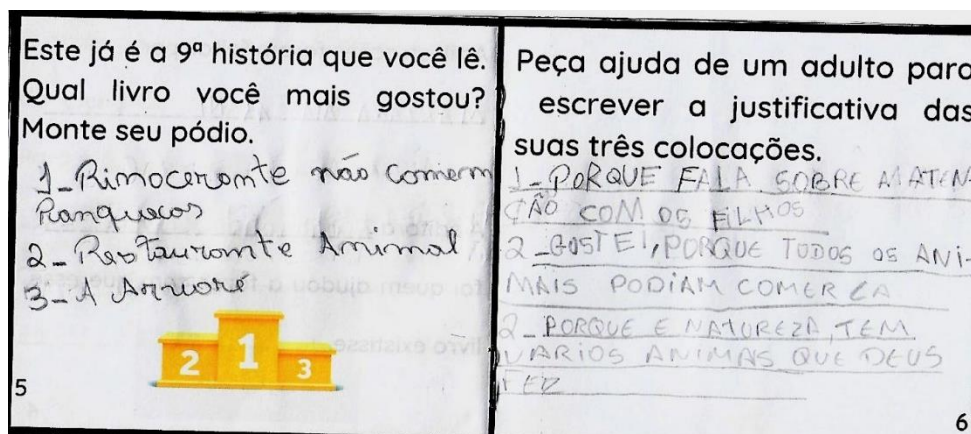 Este já é a 9ª história que você lê.
Qual livro você mais gostou?
Monte seu pódio.
1-Rimoceronte não comem
Panquecas
2-Restaurante Animal
3-A Árvore
2 1 3
5
Peça ajuda de um adulto para
escrever a justificativa das
suas três colocações.
1-PORQUE FALA SOBRE A ATEN-
ÇÃO COM OS FILHOS
2-GOSTEI, PORQUE TODOS OS ANI-
MAIS PODIAM COMER LA
2-PORQUE E NATUREZA, TEM
VARIOS ANIMAS QUE DEUS
FEZ
6